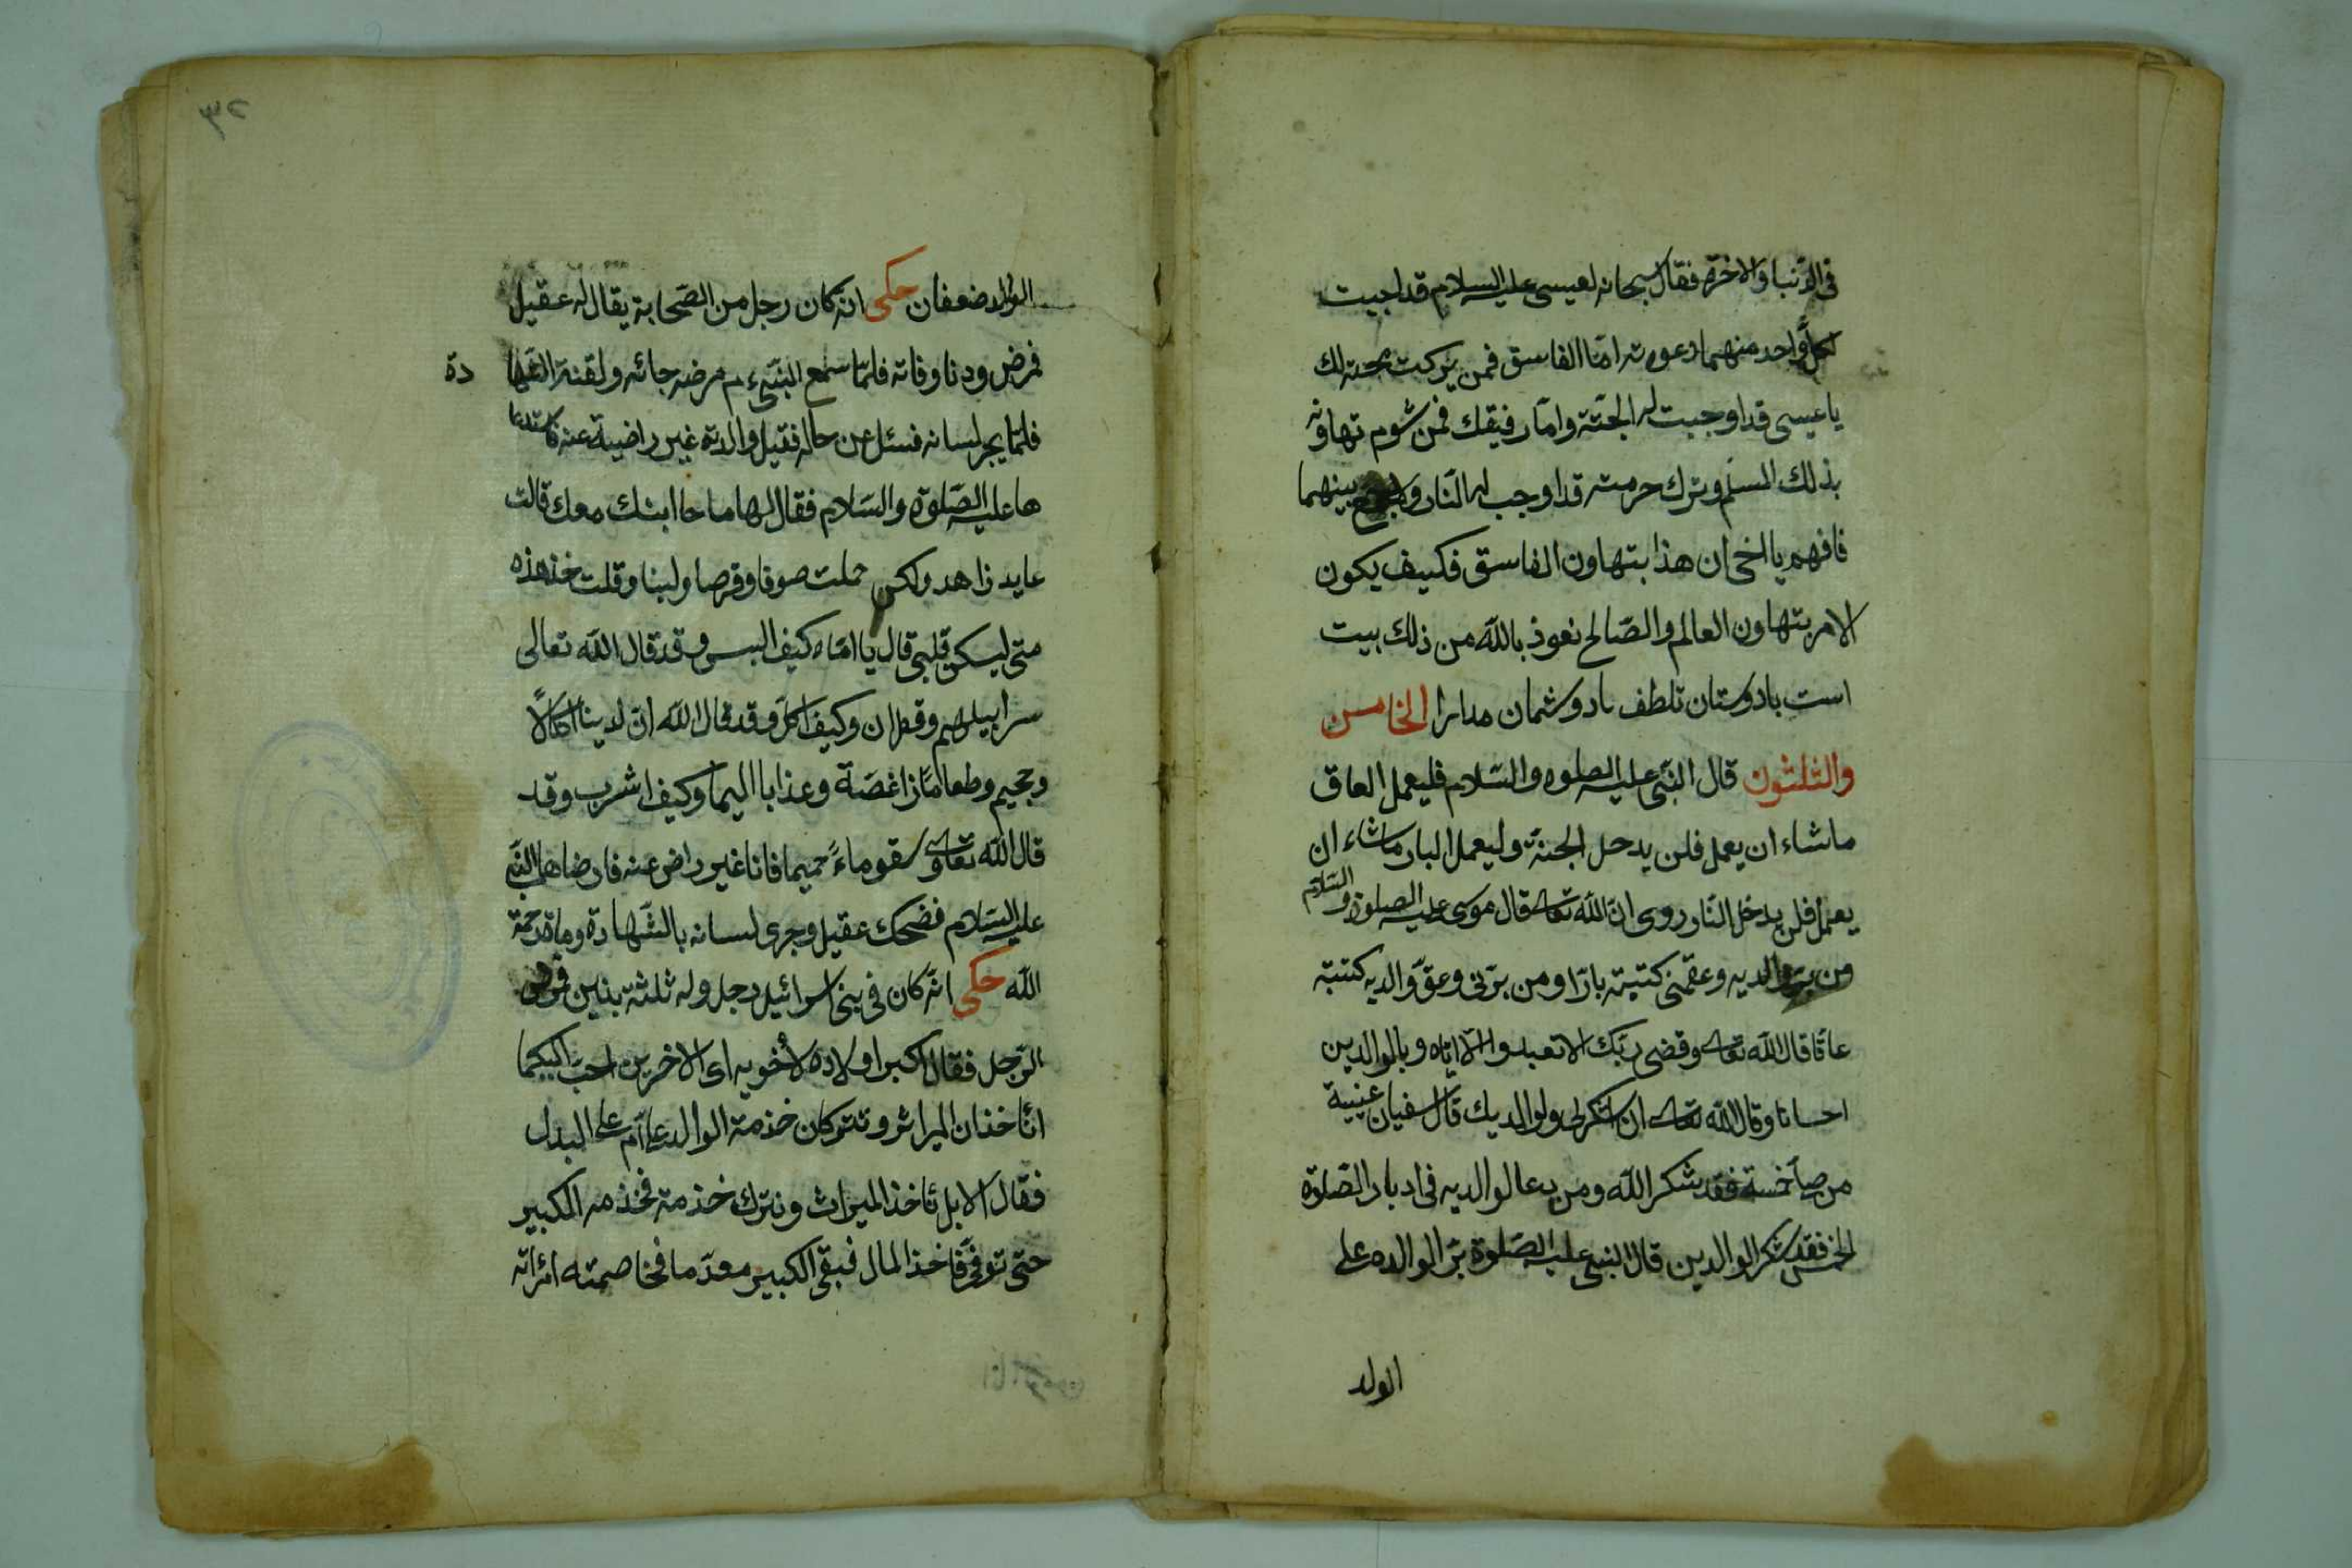 فى الدّنيا والاخرة فقال سبحانه لعيسى عليه السلام قد اجبيت
لكلّ واحد منهما دعوته امّا الفاسق فمن بركت محبته لك
يا عيسى قد اوجبت له الجنّة وامّا رفيقك فمن شوم تهاونه
بذلك المسلم وترك حرمته قد اوجب له النّار بينهما
فافهم يا اخى ان هذا بتهاون الفاسق فكييف يكون
الامر بتهاون العالم والصّالح نعوذ بالله من ذلك بيت
است بادوستان تلطف بادوشمان مدارا الخامس
والثلثون قال النّبى عليه الصلوه والسّلام فليعمل العاق
ماشاء ان يعمل فلن يدحل الجنة وليعمل البار ماشاء ان
يعمل فلن يدخل النّار روى انّ الله تعالى قال موسى عليه الصلوة والسّلام
من برّ والديه وعقّنى كتبته بارّا ومن برّنى وعقّ والديه كتبته
عاقّا قال الله تعالى وقضى ربّك الا تعبدوا الّا ايّاه وبالوالدين
احسانا وقال الله تعالى ان اشكرلى ولوالديك قال سفيان عينية
من صلّا خمسة فقد شكر الله ومن دعا لوالديه فى ادبار الصّلوة
الخمس فقد شكر الوالدين قال النبى عليه الصّلوة برّ الوالده على
الولد
٣٢
الوالد ضعفان حكى انّه كان رجل من الصّحابة يقال له عقيل
فمرض ودنا وفاته فلمّا سمع النّبىء م مرضه جائه ولقنه الشّها
دة
فلمّا يجر لسانه فسئل عن حاله فقيل والدته غير راضية عنه
ها عليه الصّلوة والسّلام فقال لها ما حا ابنك معك قالت
عابد زاهد ولكن حملت صوفا وقرصا ولبنا وقلت خذ هذه
متى ليسكن قلبى قال يا امّاه كيف البس وقد قال الله تعالى
سرابيلهم وقطران وكيف اكل وقد قال الله انّ لدينا انكالًا
وجحيم وطعامًا زاغصّة وعذابا اليما وكيف اشرب وقد
قال الله تعالى وسقوا ماءً حميما فانا غير راض عنه فارضاها النّبى
عليه السّلام فضحك عقيل وجرى لسانه بالشّهادة ومات رحمة
الله حكى انّه كان فى بنى اسرائيل رجل وله ثلثة بنين
الرّجل فقال اكبر اولاده لأخويه اى الاخرين احبّ اليكما
اتأخذان الميراث وتتركان خذمة الوالد ام على البدل
فقال الا بل نأخذ الميراث ونترك خذمة فخذمه الكبير
حتى توفّى فاخذ المال فبقى الكبير معدّما فخاصمته امرأته